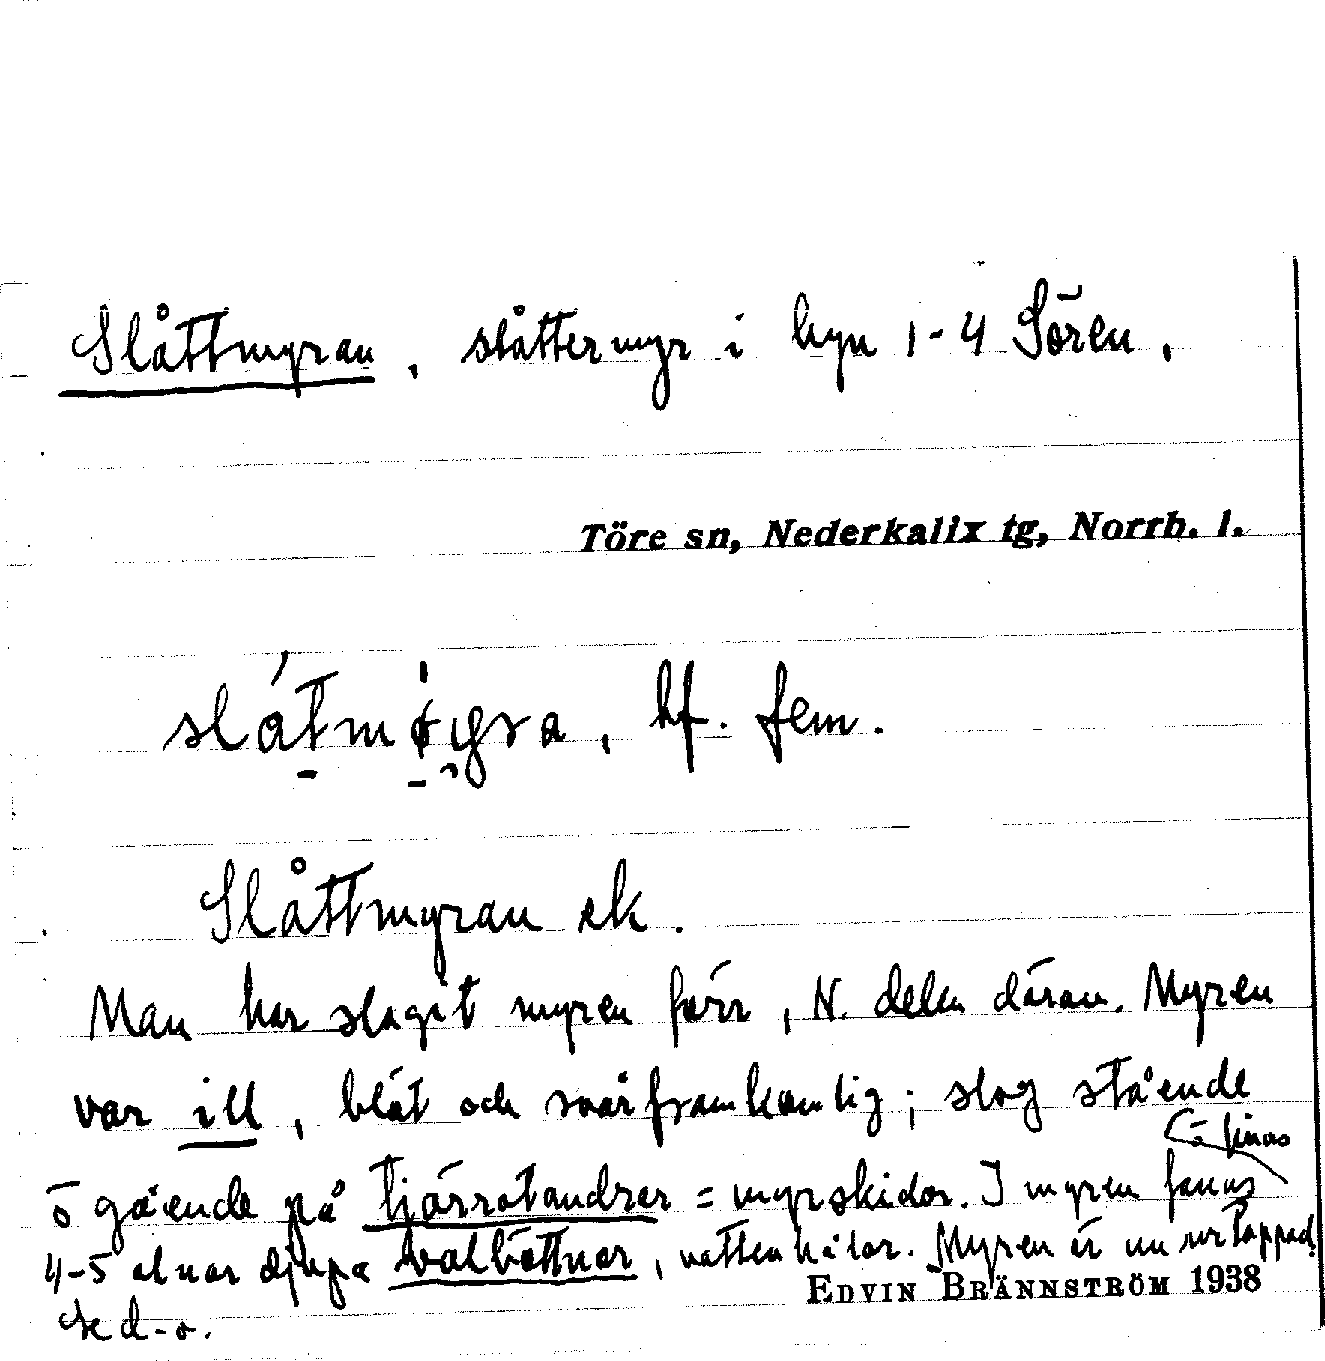 Slåttmyran, slåttermyr i hyn 1-4 Sören.
Töre sn, Nederkalix tg, Norrb. l.
hf. fem.
Slåttmyran ek.
Man har slagit myren förr, N. delen därav. Myren
var ill, blöt och svårframkomlig; slog stående
o finns
o gående på tjärrotandrer = myrskidor. I myren fanns
4-5 alnar djupa valbottnar, vattenhålor. Myren är nu urtappad.
EDVIN BRÄNNSTRÖM 1938
Se d.o.